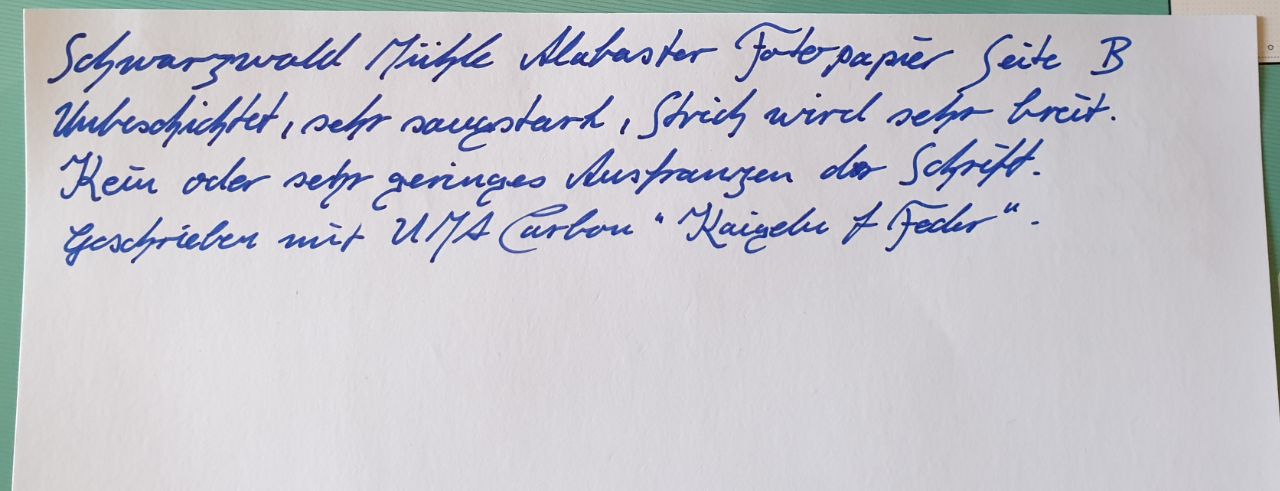 Schwarzwald Mühle Alabaster Fotopapier Seite B
Unbeschichtet, sehr saugstark, Strich wird sehr breit.
Kein oder sehr geringes Ausfranzen der Schrift.
Geschrieben mit UMA Carbon " f Feder".